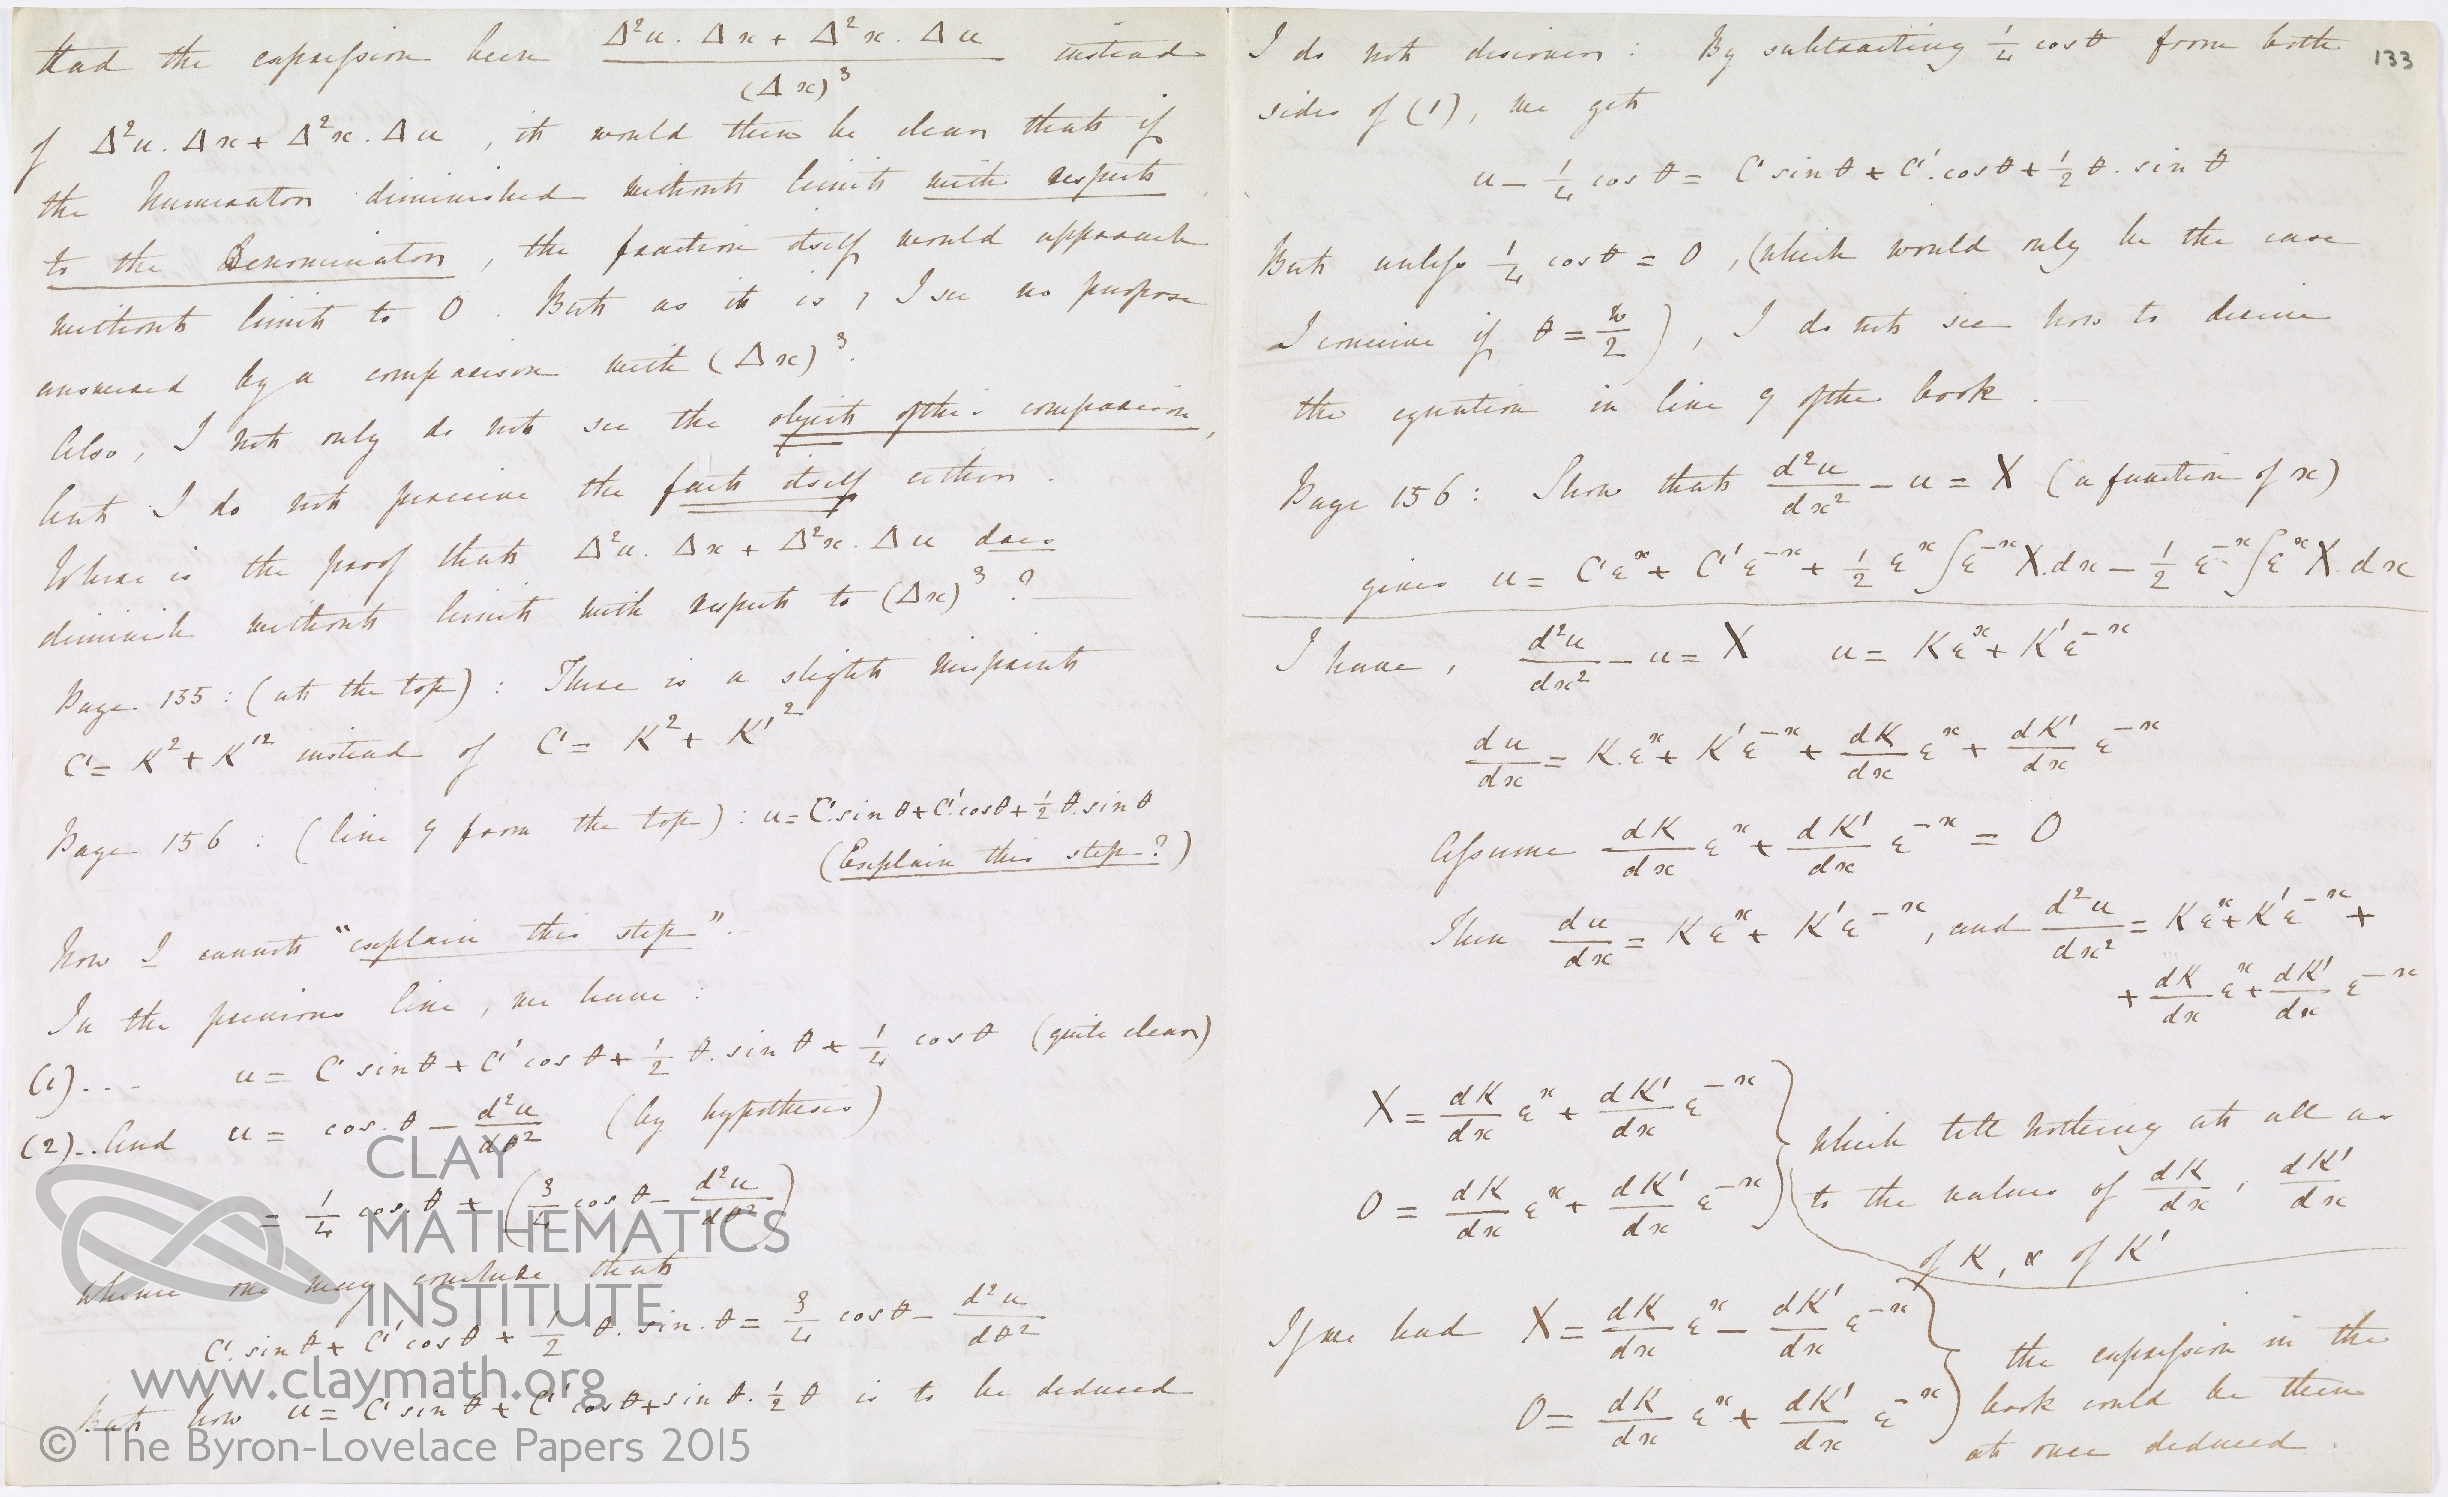 Had the expression been (Δ²u. Δx + Δ²x. Δu)/(Δx)³ instead
of Δ²u. Δx + Δ²x. Δu, it would then be clear that if
the Numerator diminished without limit with respect
to the Denominator, the fraction itself would approach
without limit to 0. But as it is, I see no purpose
answered by a comparison with (Δx)³.
Also, I not only do not see the object of this comparison,
but I do not perceive the fact itself either.
Where is the proof that Δ²u. Δx + Δ²x. Δu does
diminish without limit with respect to (Δx)³?
Page 135: (at the top): There is a slight misprint
C = K² + K'² instead of C = K² + K'²
Page 156: (line 9 from the top): u = C. sin θ + C'. cos θ + ½ θ. sin θ
(Explain this step?)
Now I cannot "explain this step".
In the previous line, we have:
(1)... u = C sin θ + C' cos θ + ½ θ. sin θ + ¼ cos θ (quite clear)
(2)..And u = cos. θ − d²u/dθ² (by hypothesis)
= ¼ cos. θ + (¾ cos θ − d²u/dθ²)
whence one may conclude that
C. sin θ + C' cos θ + ½ θ. sin. θ = ¾ cos θ − d²u/dθ²
But how u = C sin θ + C' cos θ + sin θ. ½ θ is to be deduced
CLAY
MATHEMATICS
INSTITUTE
www.claymath.org
© The Byron-Lovelace Papers 2015
133
I do not discover: By subtracting ¼ cos θ from both
sides of (1), we get
u − ¼ cos θ = C sin θ + C'. cos θ + ½ θ. sin θ
But unless ¼ cos θ = 0, (which would only be the case
I conceive if θ = π/2), I do not see how to derive
the equation in line 9 of the book.
Page 156: Show that d²u/dx² − u = X (a function of x)
gives u = Cεˣ + C'ε⁻ˣ + ½ εˣ ∫ε⁻ˣ X. dx − ½ ε⁻ˣ ∫εˣ X. dx
I have, d²u/dx² − u = X u = Kεˣ + K'ε⁻ˣ
du/dx = K. εˣ + K'ε⁻ˣ + dK/dx εˣ + dK'/dx ε⁻ˣ
Assume dK/dx εˣ + dK'/dx ε⁻ˣ = 0
Then du/dx = Kεˣ + K'ε⁻ˣ, and d²u/dx² = Kεˣ + K'ε⁻ˣ +
+ dK/dx εˣ + dK'/dx ε⁻ˣ
X = dK/dx εˣ + dK'/dx ε⁻ˣ } which tell nothing at all as
0 = dK/dx εˣ + dK'/dx ε⁻ˣ } to the values of dK/dx, dK'/dx
of K, & of K'
If we had X = dK/dx εˣ − dK'/dx ε⁻ˣ } the expression in the
0 = dK/dx εˣ + dK'/dx ε⁻ˣ } book could be then
at once deduced.